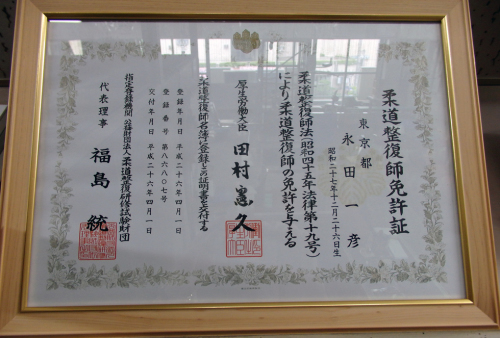 柔道整復師免許証
東京都
永田一彦
昭和二十七年十二月二十六日生
柔道整復師法(昭和四十五年法律第十九号)
により柔道整復師の免許を与える
厚生労働大臣 田村憲久
柔道整復師名簿に登録しこの証明書を交付する
登録年月日 平成二十六年四月一日
登録番号 第八六八〇七号
交付年月日 平成二十六年四月一日
指定登録機関 公益財団法人柔道整復研修試験財団
代表理事 福島 統